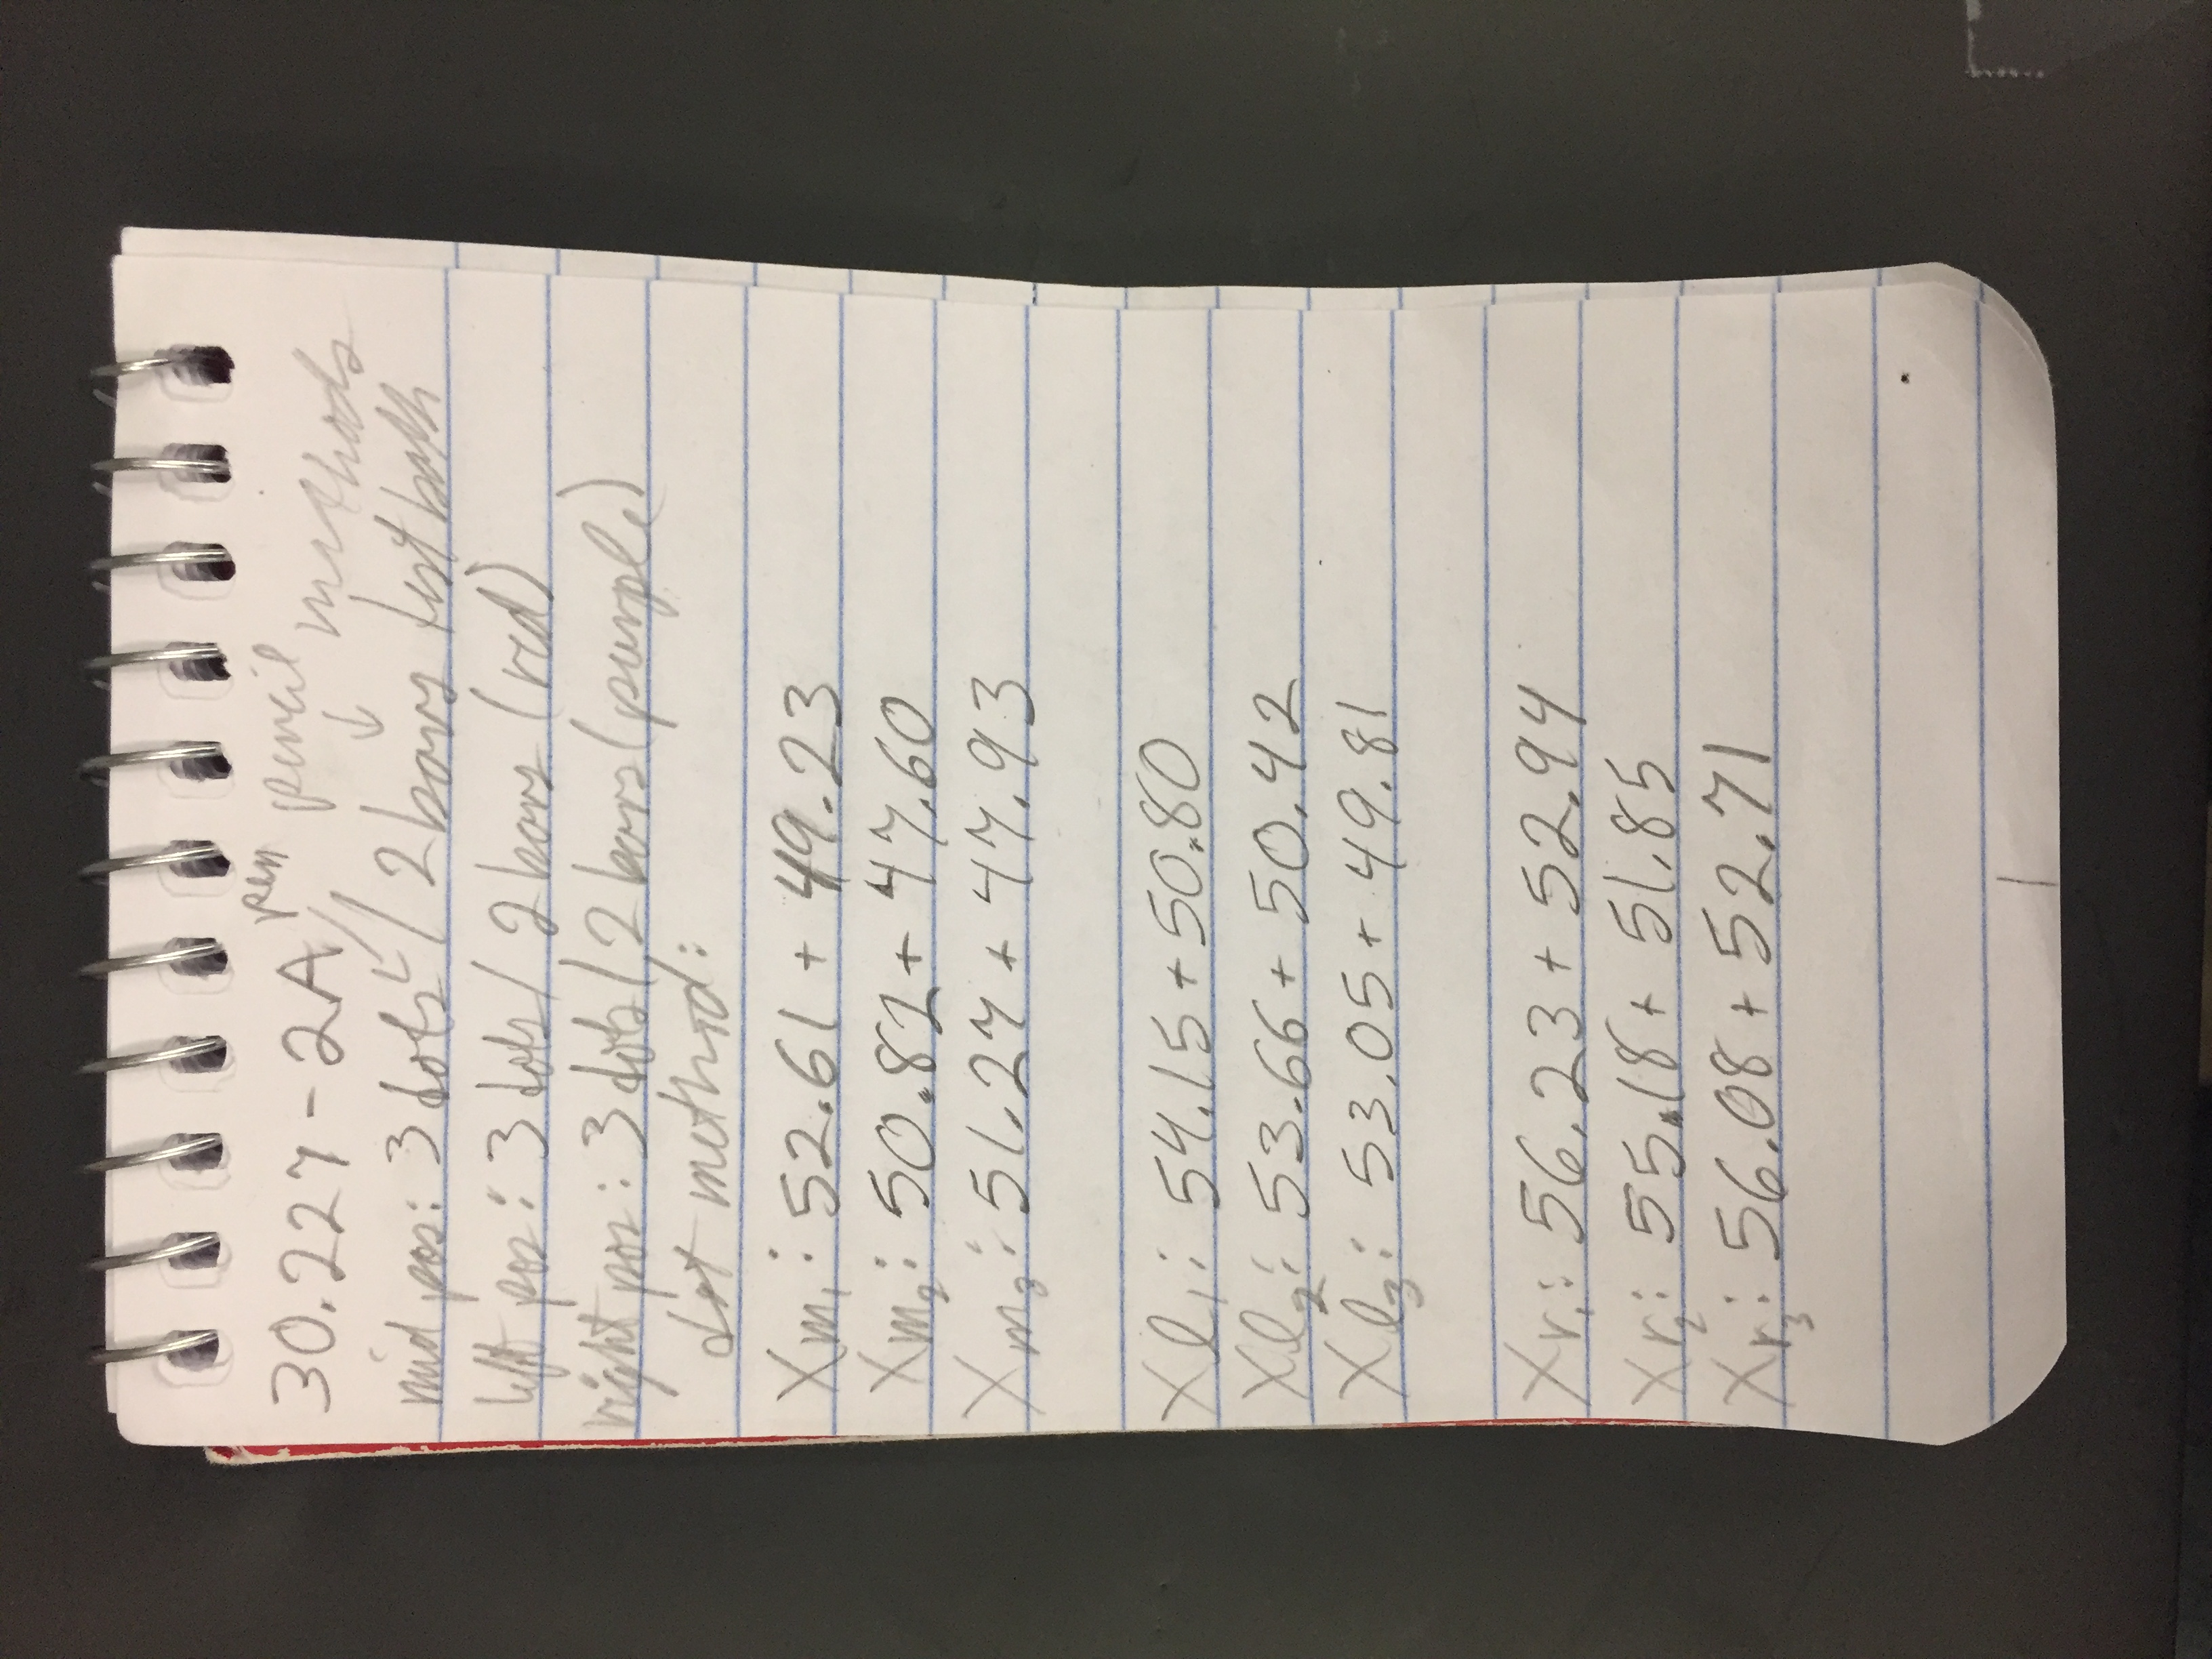 30.227-2A pen pencil methods
mid pos: 3 dots / 2 bars test both
left pos: 3 dots / 2 bars (red)
right pos: 3 dots / 2 bars (purple)
dot method:
Xm₁: 52.61 + 49.23
Xm₂: 50.82 + 47.60
Xm₃: 51.27 + 47.93
Xl₁: 54.15 + 50.80
Xl₂: 53.66 + 50.42
Xl₃: 53.05 + 49.81
Xr₁: 56.23 + 52.94
Xr₂: 55.18 + 51.85
Xr₃: 56.08 + 52.71
1